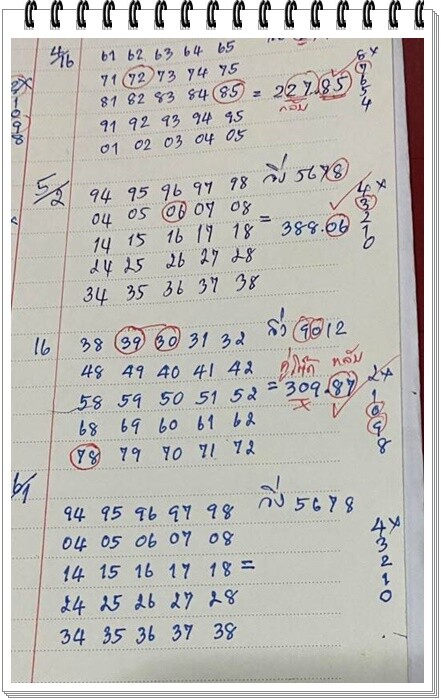 4/16 61 62 63 64 65
71 72 73 74 75 8x
81 82 83 84 85 = 227.85 7
91 92 93 94 95 กลับ 6
01 02 03 04 05 5
4
x
1
0
9
8
5/2 94 95 96 97 98 วิ่ง 5678
04 05 06 07 08 4x
14 15 16 17 18 = 388.06 3
24 25 26 27 28 2
34 35 36 37 38 1
0
16 38 39 30 31 32 วิ่ง 9012
48 49 40 41 42 กลับ
58 59 50 51 52 = 309.87 2x
68 69 60 61 62 1
78 79 70 71 72 0
9
8
6/1 94 95 96 97 98 วิ่ง 5678
04 05 06 07 08 4x
14 15 16 17 18 = 3
24 25 26 27 28 2
34 35 36 37 38 1
0